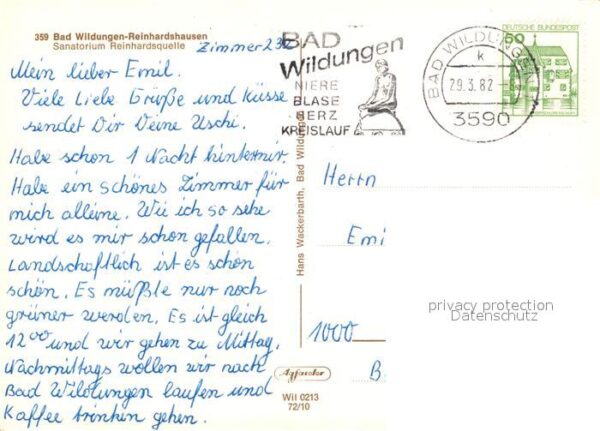 359 Bad Wildungen-Reinhardshausen
Sanatorium Reinhardsquelle
Zimmer 232
Mein lieber Emil.
Viele Liebe Grüße und Küsse
sendet Dir Deine Uschi.
Habe schon 1 Nacht hintermir.
Habe ein schönes Zimmer für
mich alleine. Wie ich so sehe
wird es mir schon gefallen.
Landschaftlich ist es schon
schön. Es müßte nur noch
grüner werden. Es ist gleich
1200 und wir gehen zu Mittag.
Nachmittags wollen wir nach
Bad Wildungen laufen und
Kaffee trinken gehen.
BAD
Wildungen
NIERE
BLASE
HERZ
KREISLAUF
BAD WILDUNGEN
k
29.3.82
3590
DEUTSCHE BUNDESPOST
50
Hans Wackerbarth, Bad Wildungen
Herrn
Emi
1000
B
privacy protection
Datenschutz
Agfacolor
Wil 0213
72/10